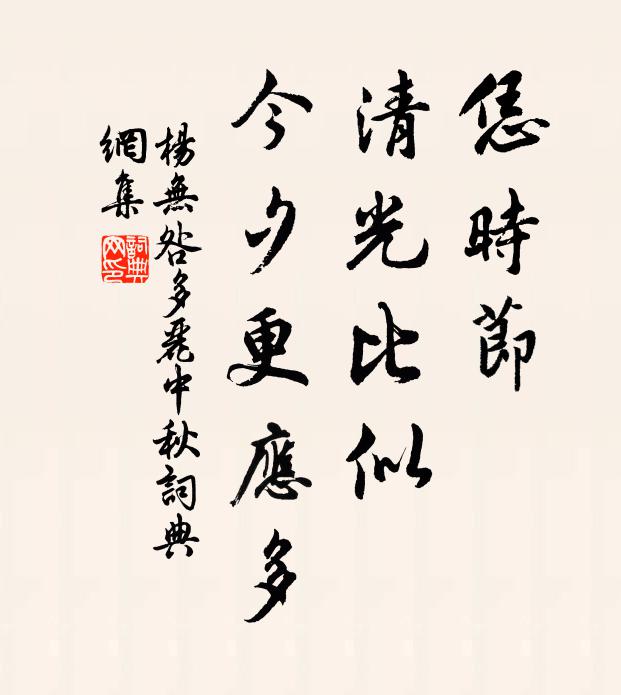 恁時節
清光比似
今夕更應多
楊無咎多麗中秋詞典
網集
詞典
网印